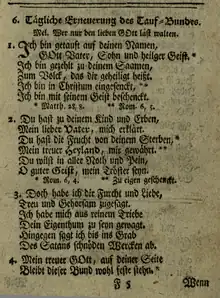 6. Tägliche Erneuerung des Tauf-Bundes.
Mel. Wer nur den lieben GOtt läßt walten.
1. Ich bin getauft auf deinen Namen,
GOtt Vater, Sohn und heilger Geist.*
Ich bin gezehlt zu deinem Saamen,
Zum Volck, das dir geheiligt heißt.
Ich bin in Christum eingesenckt, **
Ich bin mit seinem Geist beschenckt.
* Matth. 28, 8. ** Rom. 6, 5.
2. Du hast zu deinem Kind und Erben,
Mein lieber Vater, mich erklärt.
Du hast die Frucht von deinem Sterben,*
Mein treuer Heyland, mir gewährt. **
Du wilst in aller Noth und Pein,
O guter Geist, mein Tröster seyn.
* Rom. 6, 4. ** Zu eigen geschenckt.
3. Doch habe ich dir Furcht und Liebe,
Treu und Gehorsam zugesagt.
Ich habe mich aus reinem Triebe
Dein Eigenthum zu seyn gewagt.
Hingegen sagt ich bis ins Grab
Des Satans schnöden Wercken ab.
4. Mein treuer GOtt, auf deiner Seite
Bleibt dieser Bund wohl feste stehn.*
F 5 Wenn